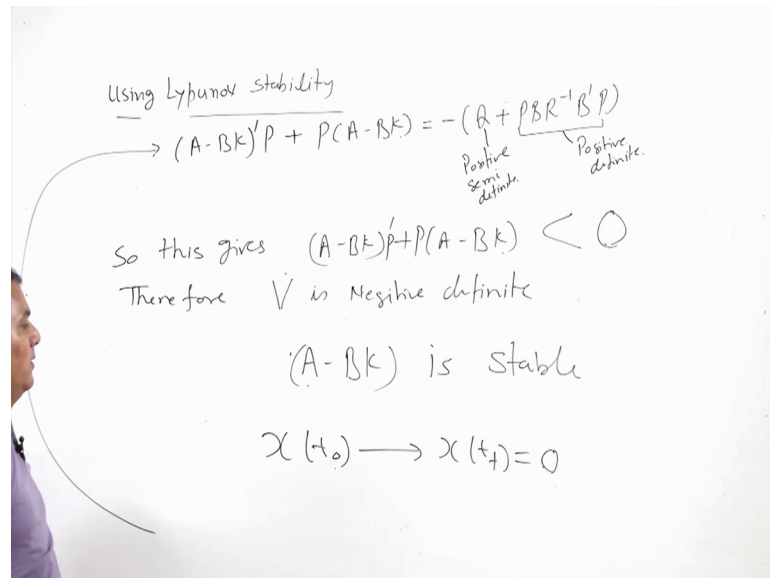 Using Lypunov stability
(A-BK)'P + P(A-BK) = -(Q + PBR⁻¹B'P)
Positive semi definite.
Positive definite.
So this gives (A-BK)'P+P(A-BK) < 0
Therefore V̇ is Negitive definite
(A-BK) is stable
x(t₀) → x(t_f) = 0